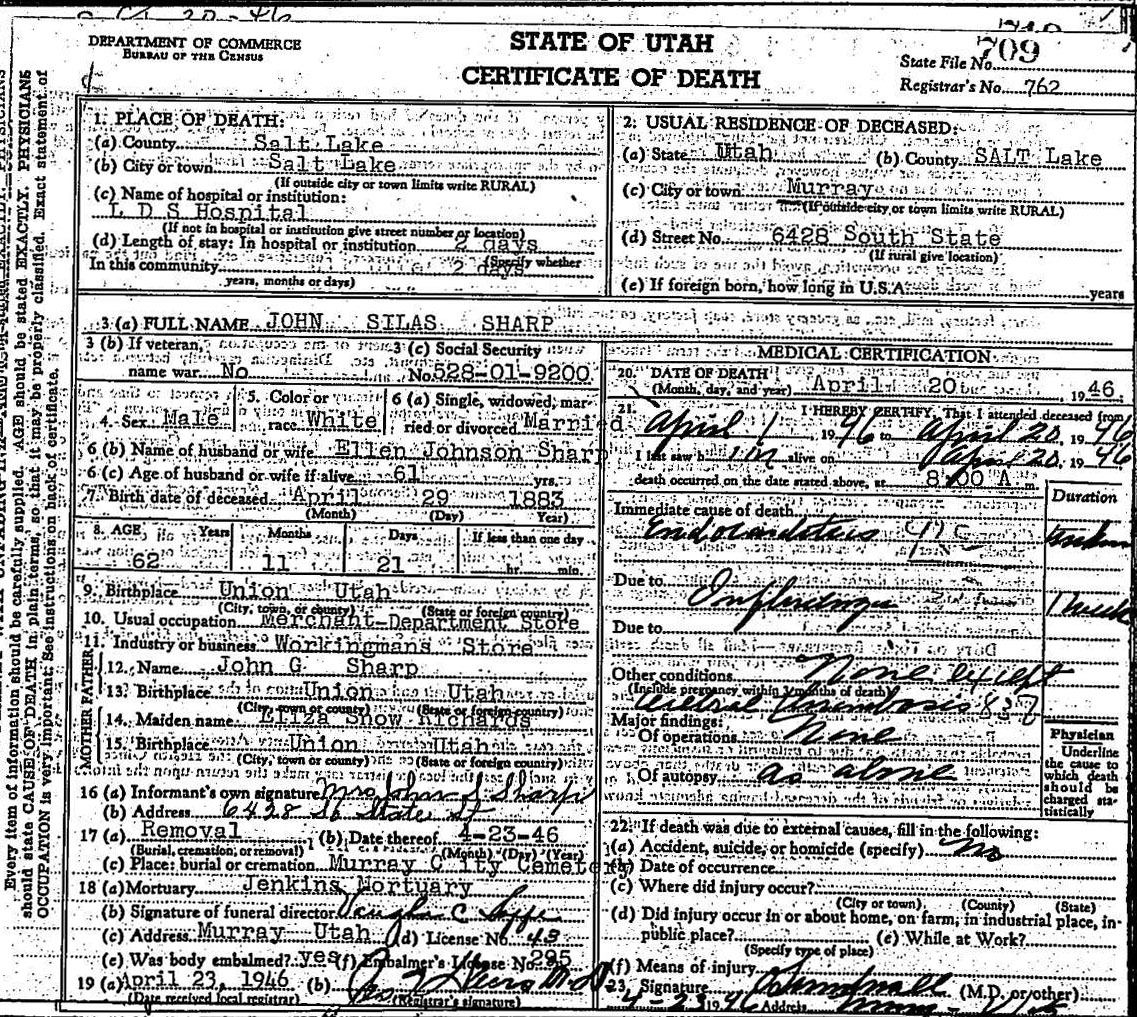 Oct 20-46
DEPARTMENT OF COMMERCE
BUREAU OF THE CENSUS
STATE OF UTAH
CERTIFICATE OF DEATH
State File No. 709
Registrar's No. 762
Every item of information should be carefully supplied. AGE should be stated EXACTLY. PHYSICIANS
should state CAUSE OF DEATH in plain terms, so that it may be properly classified. Exact statement of
OCCUPATION is very important. See instructions on back of certificate.
1. PLACE OF DEATH:
(a) County Salt Lake
(b) City or town Salt Lake
(If outside city or town limits write RURAL)
(c) Name of hospital or institution:
L D S Hospital
(If not in hospital or institution give street number or location)
(d) Length of stay: In hospital or institution 2 days
(Specify whether
In this community 2 days
years, months or days)
2. USUAL RESIDENCE OF DECEASED:
(a) State Utah (b) County SALT Lake
(c) City or town Murray
(If outside city or town limits write RURAL)
(d) Street No. 6428 South State
(If rural give location)
(e) If foreign born, how long in U.S.A. years
3 (a) FULL NAME JOHN SILAS SHARP
3 (b) If veteran, 3 (c) Social Security
name war No No. 528-01-9200
4. Sex Male
5. Color or
race White
6 (a) Single, widowed, mar-
ried or divorced Married
6 (b) Name of husband or wife Ellen Johnson Sharp
6 (c) Age of husband or wife if alive 61 yrs.
7. Birth date of deceased April 29 1883
(Month) (Day) Year)
8. AGE Years Months Days If less than one day
62 11 21 hr. min.
9. Birthplace Union Utah
(City, town, or county) (State or foreign country)
10. Usual occupation Merchant-Department Store
11. Industry or business Workingmans Store
FATHER
12. Name John G Sharp
13. Birthplace Union Utah
(City, town or county) (State or foreign country)
MOTHER
14. Maiden name Eliza Snow Richards
15. Birthplace Union Utah
(City, town or county) (State or foreign country)
16 (a) Informant's own signature Mrs John S Sharp
(b) Address 6428 So State St
17 (a) Removal (b) Date thereof 4-23-46
(Burial, cremation, or removal) (Month) (Day) (Year)
(c) Place: burial or cremation Murray City Cemetery
18 (a) Mortuary Jenkins Mortuary
(b) Signature of funeral director Vaughn C
(c) Address Murray Utah (d) License No. 43
(e) Was body embalmed? yes (f) Embalmer's License No. 295
19 (a) April 23, 1946 (b)
(Date received local registrar) (Registrar's signature)
MEDICAL CERTIFICATION
20. DATE OF DEATH
(Month, day, and year) April 20 1946.
21. I HEREBY CERTIFY, That I attended deceased from
April 1 1946 to April 20, 1946
I last saw him alive on April 20, 1946
death occurred on the date stated above, at 8:00 A m.
Duration
Immediate cause of death
Endocarditis
Due to Influenza 1 week
Due to
Other conditions None except
(Include pregnancy within 3 months of death)
Cerebral Thrombosis 83
Major findings:
Of operations None
Of autopsy as above
Physician
Underline
the cause to
which death
should be
charged sta-
tistically
22. If death was due to external causes, fill in the following:
(a) Accident, suicide, or homicide (specify) no
(b) Date of occurrence
(c) Where did injury occur?
(City or town), (County) (State)
(d) Did injury occur in or about home, on farm, in industrial place, in
public place? (e) While at Work?
(Specify type of place)
(f) Means of injury
23. Signature (M.D. or other)
4-23 1946 Address